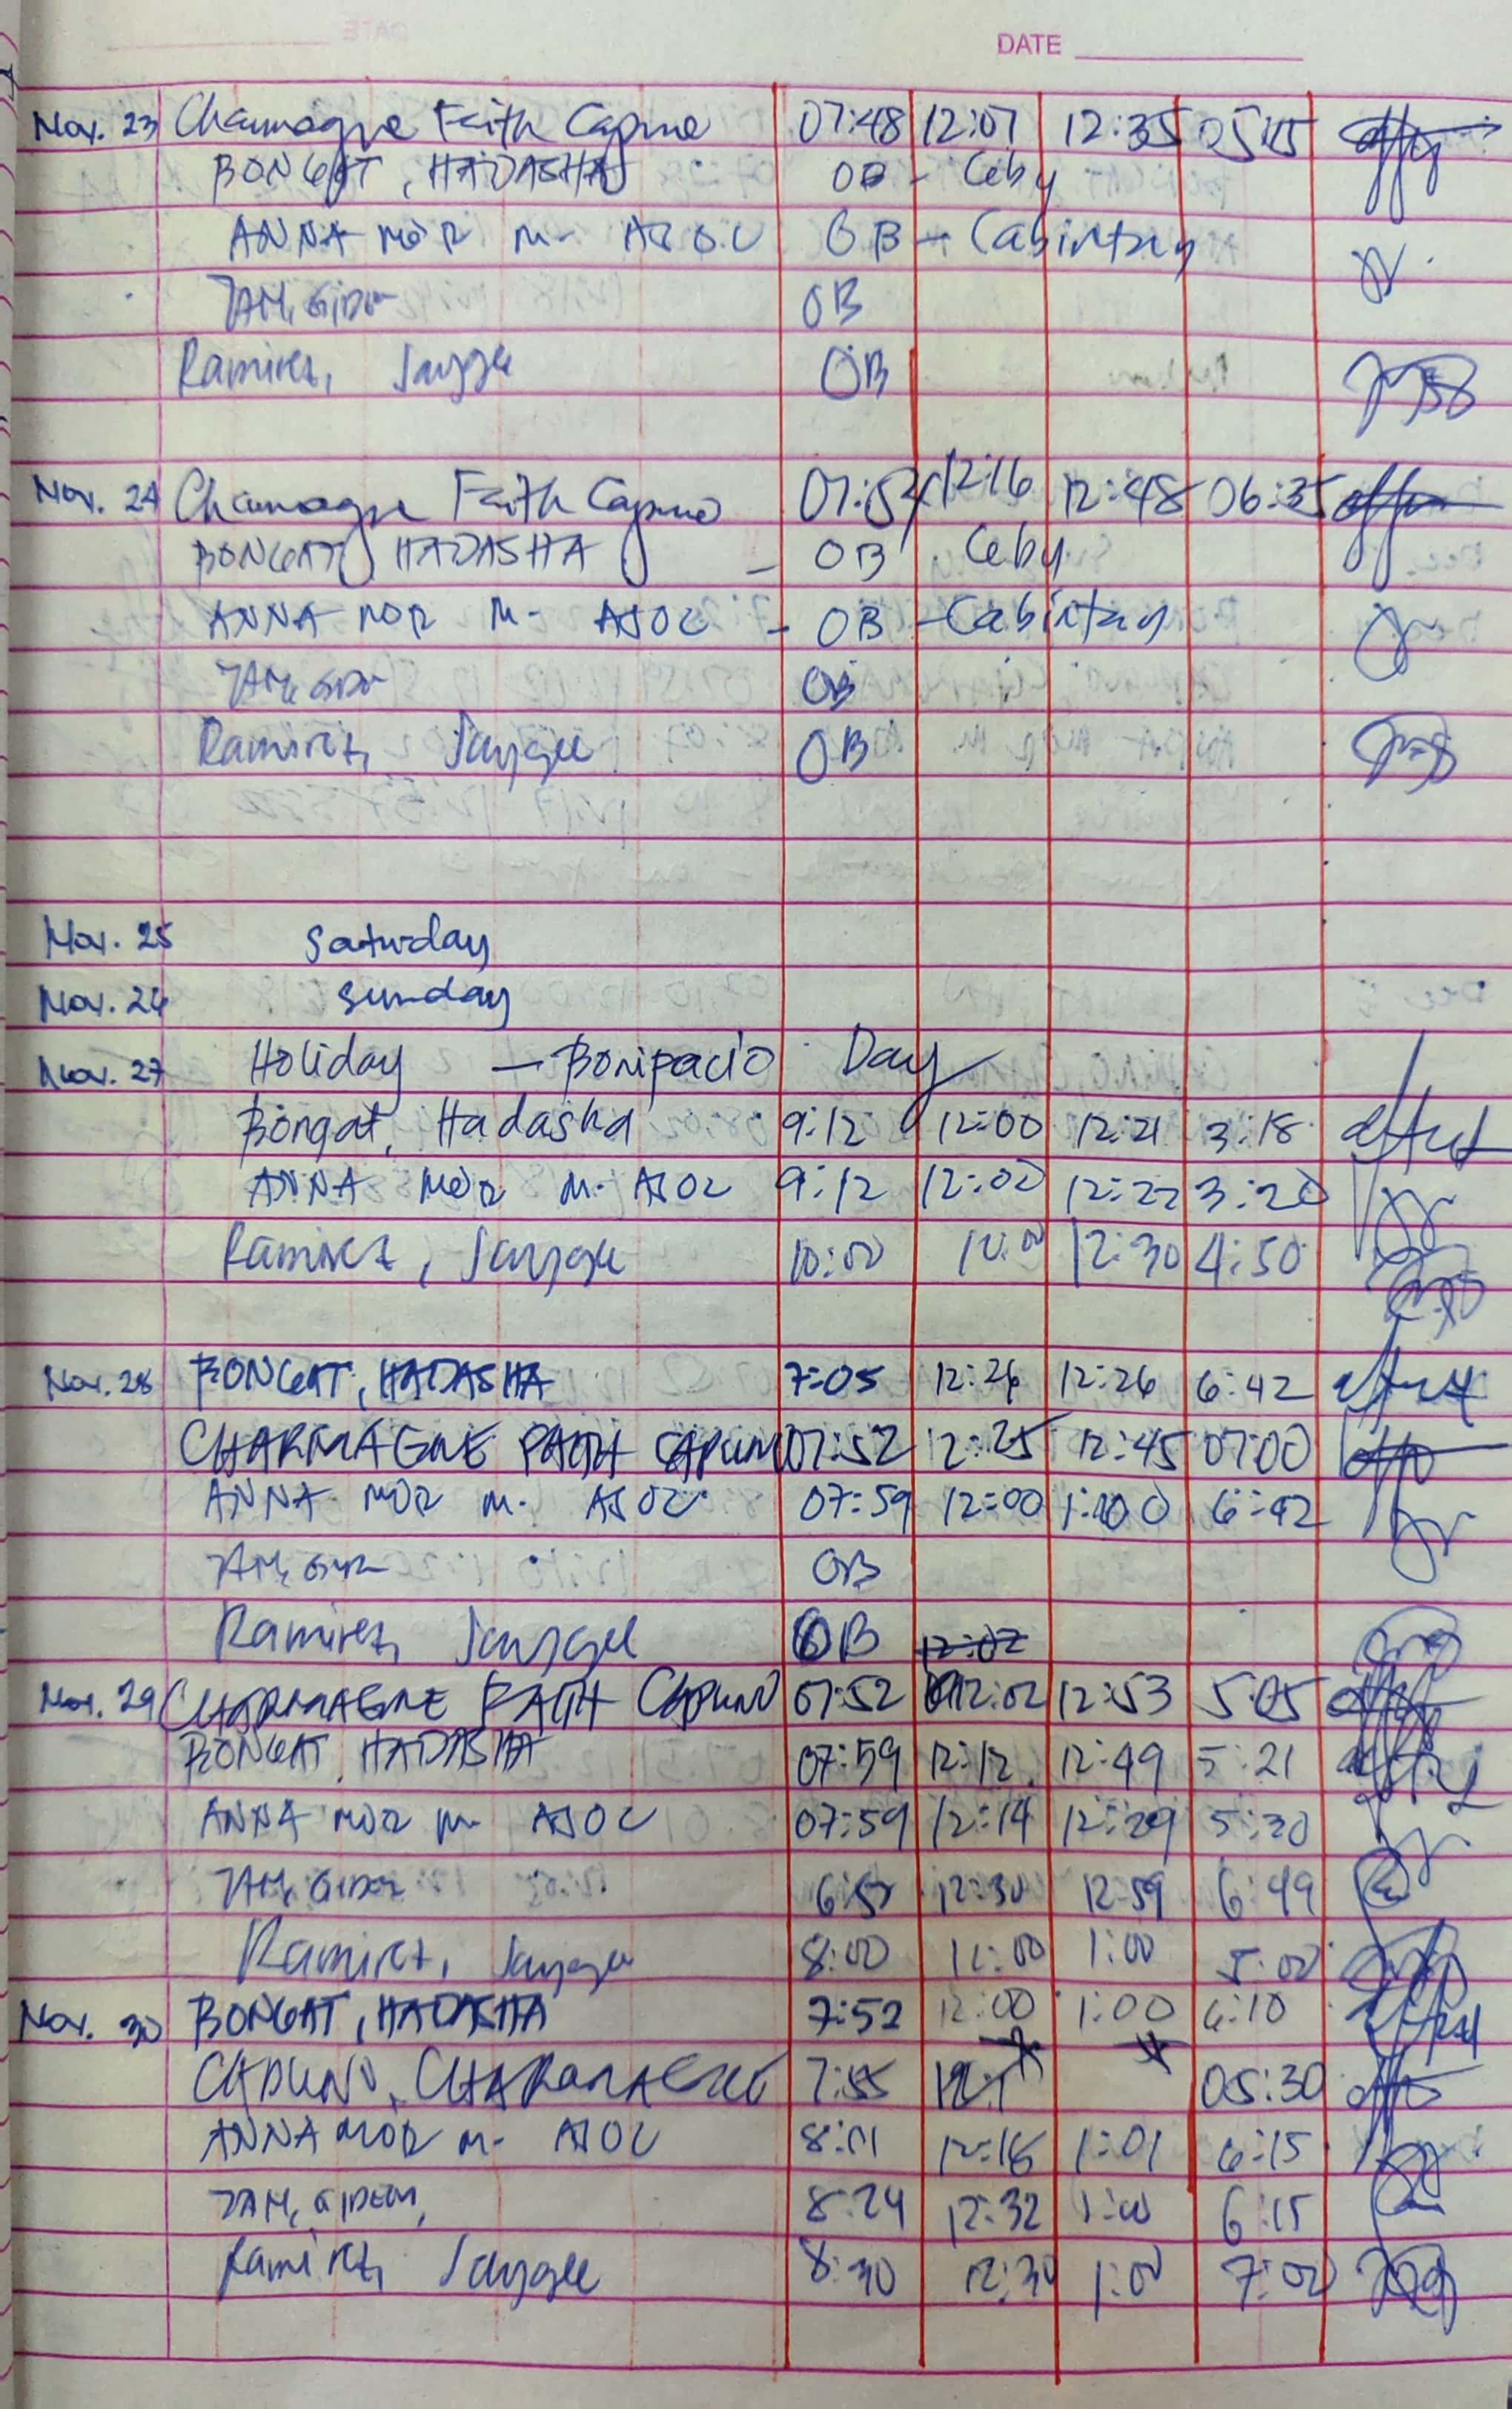 DATE
Nov. 23 Charmagne Faith Capuno 07:48 12:07 12:35 05:15
BONGAT, HADASHA OB - Ceby
ANNA MOR M. AJOC OB - Cabintan
TAM, GIDEON OB
Ramirez, Jaygee OB
Nov. 24 Charmagne Faith Capuno 07:54 12:16 12:48 06:35
BONGAT, HADASHA - OB Ceby
ANNA MOR M. AJOC - OB - Cabintan
TAM, GIDEON OB
Ramirez, Jaygee OB
Nov. 25 Saturday
Nov. 26 Sunday
Nov. 27 Holiday - Bonipacio Day
Bongat, Hadasha 9:12 12:00 12:21 3:18
ANNA MOR M. AJOC 9:12 12:00 12:22 3:20
Ramirez, Jaygee 10:00 12:00 12:30 4:50
Nov. 28 BONGAT, HADASHA 7:05 12:26 12:26 6:42
CHARMAGNE FAITH CAPUNO 07:52 12:25 12:45 07:00
ANNA MOR M. AJOC 07:59 12:00 1:00 6:42
TAM, GIDEON OB
Ramirez, Jaygee OB 12:02
Nov. 29 CHARMAGNE FAITH CAPUNO 07:52 12:02 12:53 5:05
BONGAT, HADASHA 07:59 12:12 12:49 5:21
ANNA MOR M. AJOC 07:59 12:14 12:29 5:30
TAM, GIDEON 12:30 12:59 6:49
Ramirez, Jaygee 8:00 12:00 1:00 5:00
Nov. 30 BONGAT, HADASHA 7:52 12:00 1:00 6:10
CAPUNO, CHARMAGNE 7:55 05:30
ANNA MOR M. AJOC 8:01 12:16 1:01 6:15
TAM, GIDEON, 8:24 12:32 1:00 6:15
Ramirez, Jaygee 8:30 12:30 1:00 7:00